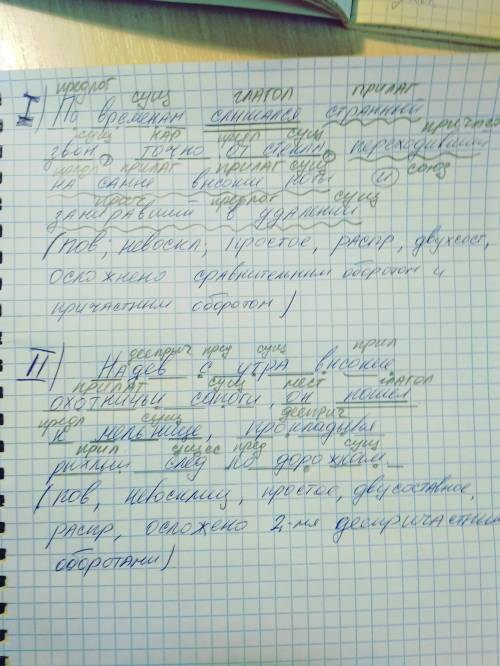 предлог сущ глагол прилаг
I) По временам слышался странный
сущ нар предл сущ причаст
звон, точно от стекла, переходивший
предл прилаг прилаг сущ союз
на самые высокие ноты и
прич предлог сущ
замиравший в удалении
(пов; невоскл; простое, распр, двухсост,
осложнено сравнительным оборотом и
причастным оборотом)
дееприч пред сущ прил
II) Надев с утра высокие
прилаг сущ мест глагол
охотничьи сапоги, он пошел
предл сущ дееприч
к мельнице, прокладывая
прил пред сущ
рыхлый след по дорожкам
(пов, невосклиц, простое, двусоставное,
распр, осложено 2-мя деепричастным
оборотами)